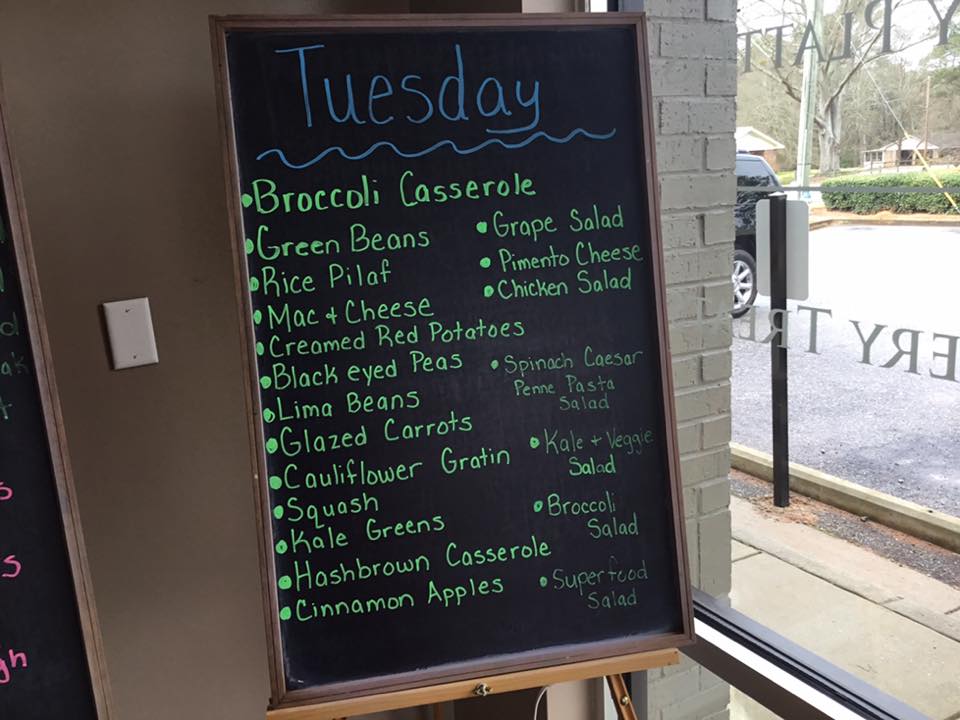 Tuesday
•Broccoli Casserole
•Green Beans
•Rice Pilaf
•Mac + Cheese
•Creamed Red Potatoes
•Black eyed Peas
•Lima Beans
•Glazed Carrots
•Cauliflower Gratin
•Squash
•Kale Greens
•Hashbrown Casserole
•Cinnamon Apples
•Grape Salad
•Pimento Cheese
•Chicken Salad
•Spinach Caesar
Penne Pasta
Salad
•Kale + Veggie
Salad
•Broccoli
Salad
•Superfood
Salad
Y PLATT
ERY TRE